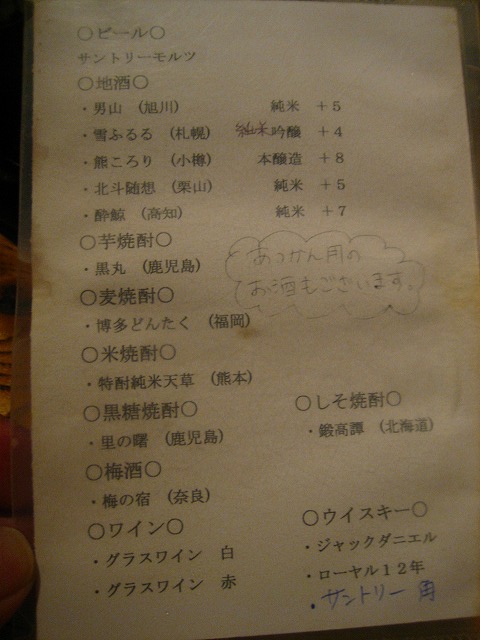 〇ビール〇
サントリーモルツ
〇地酒〇
・男山 (旭川) 純米 +5
・雪ふるる (札幌) 純米吟醸 +4
・熊ころり (小樽) 本醸造 +8
・北斗随想 (栗山) 純米 +5
・酔鯨 (高知) 純米 +7
〇芋焼酎〇
・黒丸 (鹿児島)
あつかん用の
お酒もございます。
〇麦焼酎〇
・博多どんたく (福岡)
〇米焼酎〇
・特酎純米天草 (熊本)
〇黒糖焼酎〇
・里の曙 (鹿児島)
〇しそ焼酎〇
・鍛高譚 (北海道)
〇梅酒〇
・梅の宿 (奈良)
〇ワイン〇
・グラスワイン 白
・グラスワイン 赤
〇ウイスキー〇
・ジャックダニエル
・ローヤル12年
・サントリー 角